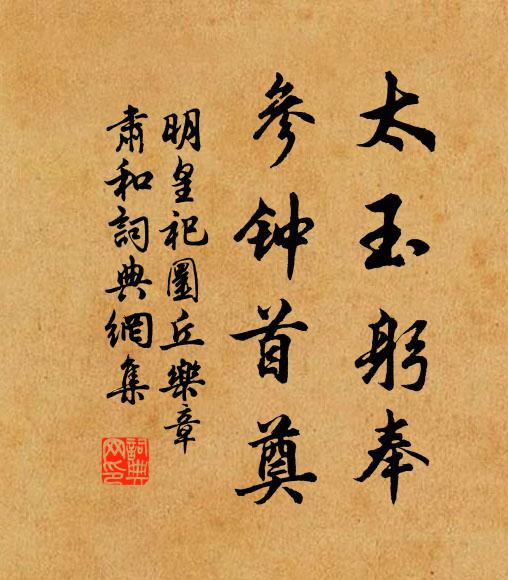 太玉躬奉
参钟首奠
明皇祀圜丘樂章
肅和詞典網集
詞典网印